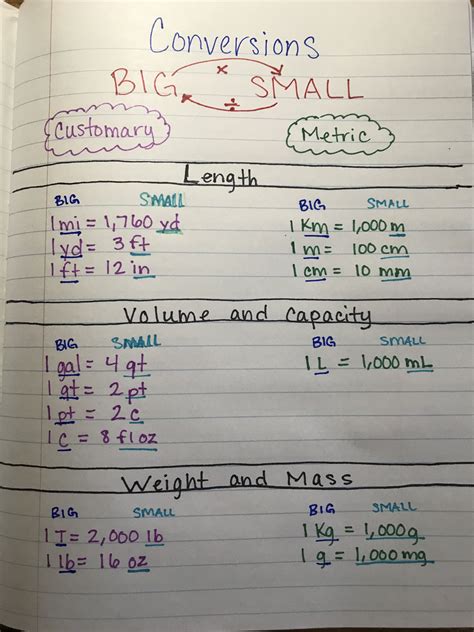 Conversions
×
BIG SMALL
÷
Customary Metric
Length
BIG SMALL BIG SMALL
1 mi = 1,760 yd 1 Km = 1,000 m
1 yd = 3 ft 1 m = 100 cm
1 ft = 12 in 1 cm = 10 mm
Volume and Capacity
BIG SMALL BIG SMALL
1 gal = 4 qt 1 L = 1,000 mL
1 qt = 2 pt
1 pt = 2 c
1 c = 8 fl oz
Weight and Mass
BIG SMALL BIG SMALL
1 T = 2,000 lb 1 Kg = 1,000 g
1 lb = 16 oz 1 g = 1,000 mg